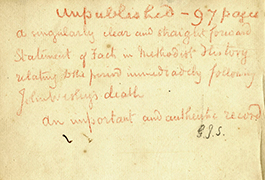 Unpublished - 97 pages
a singularly clear and straight forward
Statement of Fact in Methodist History
relating to the period immediately following
John Wesley's death
an important and authentic record
G.J.S.